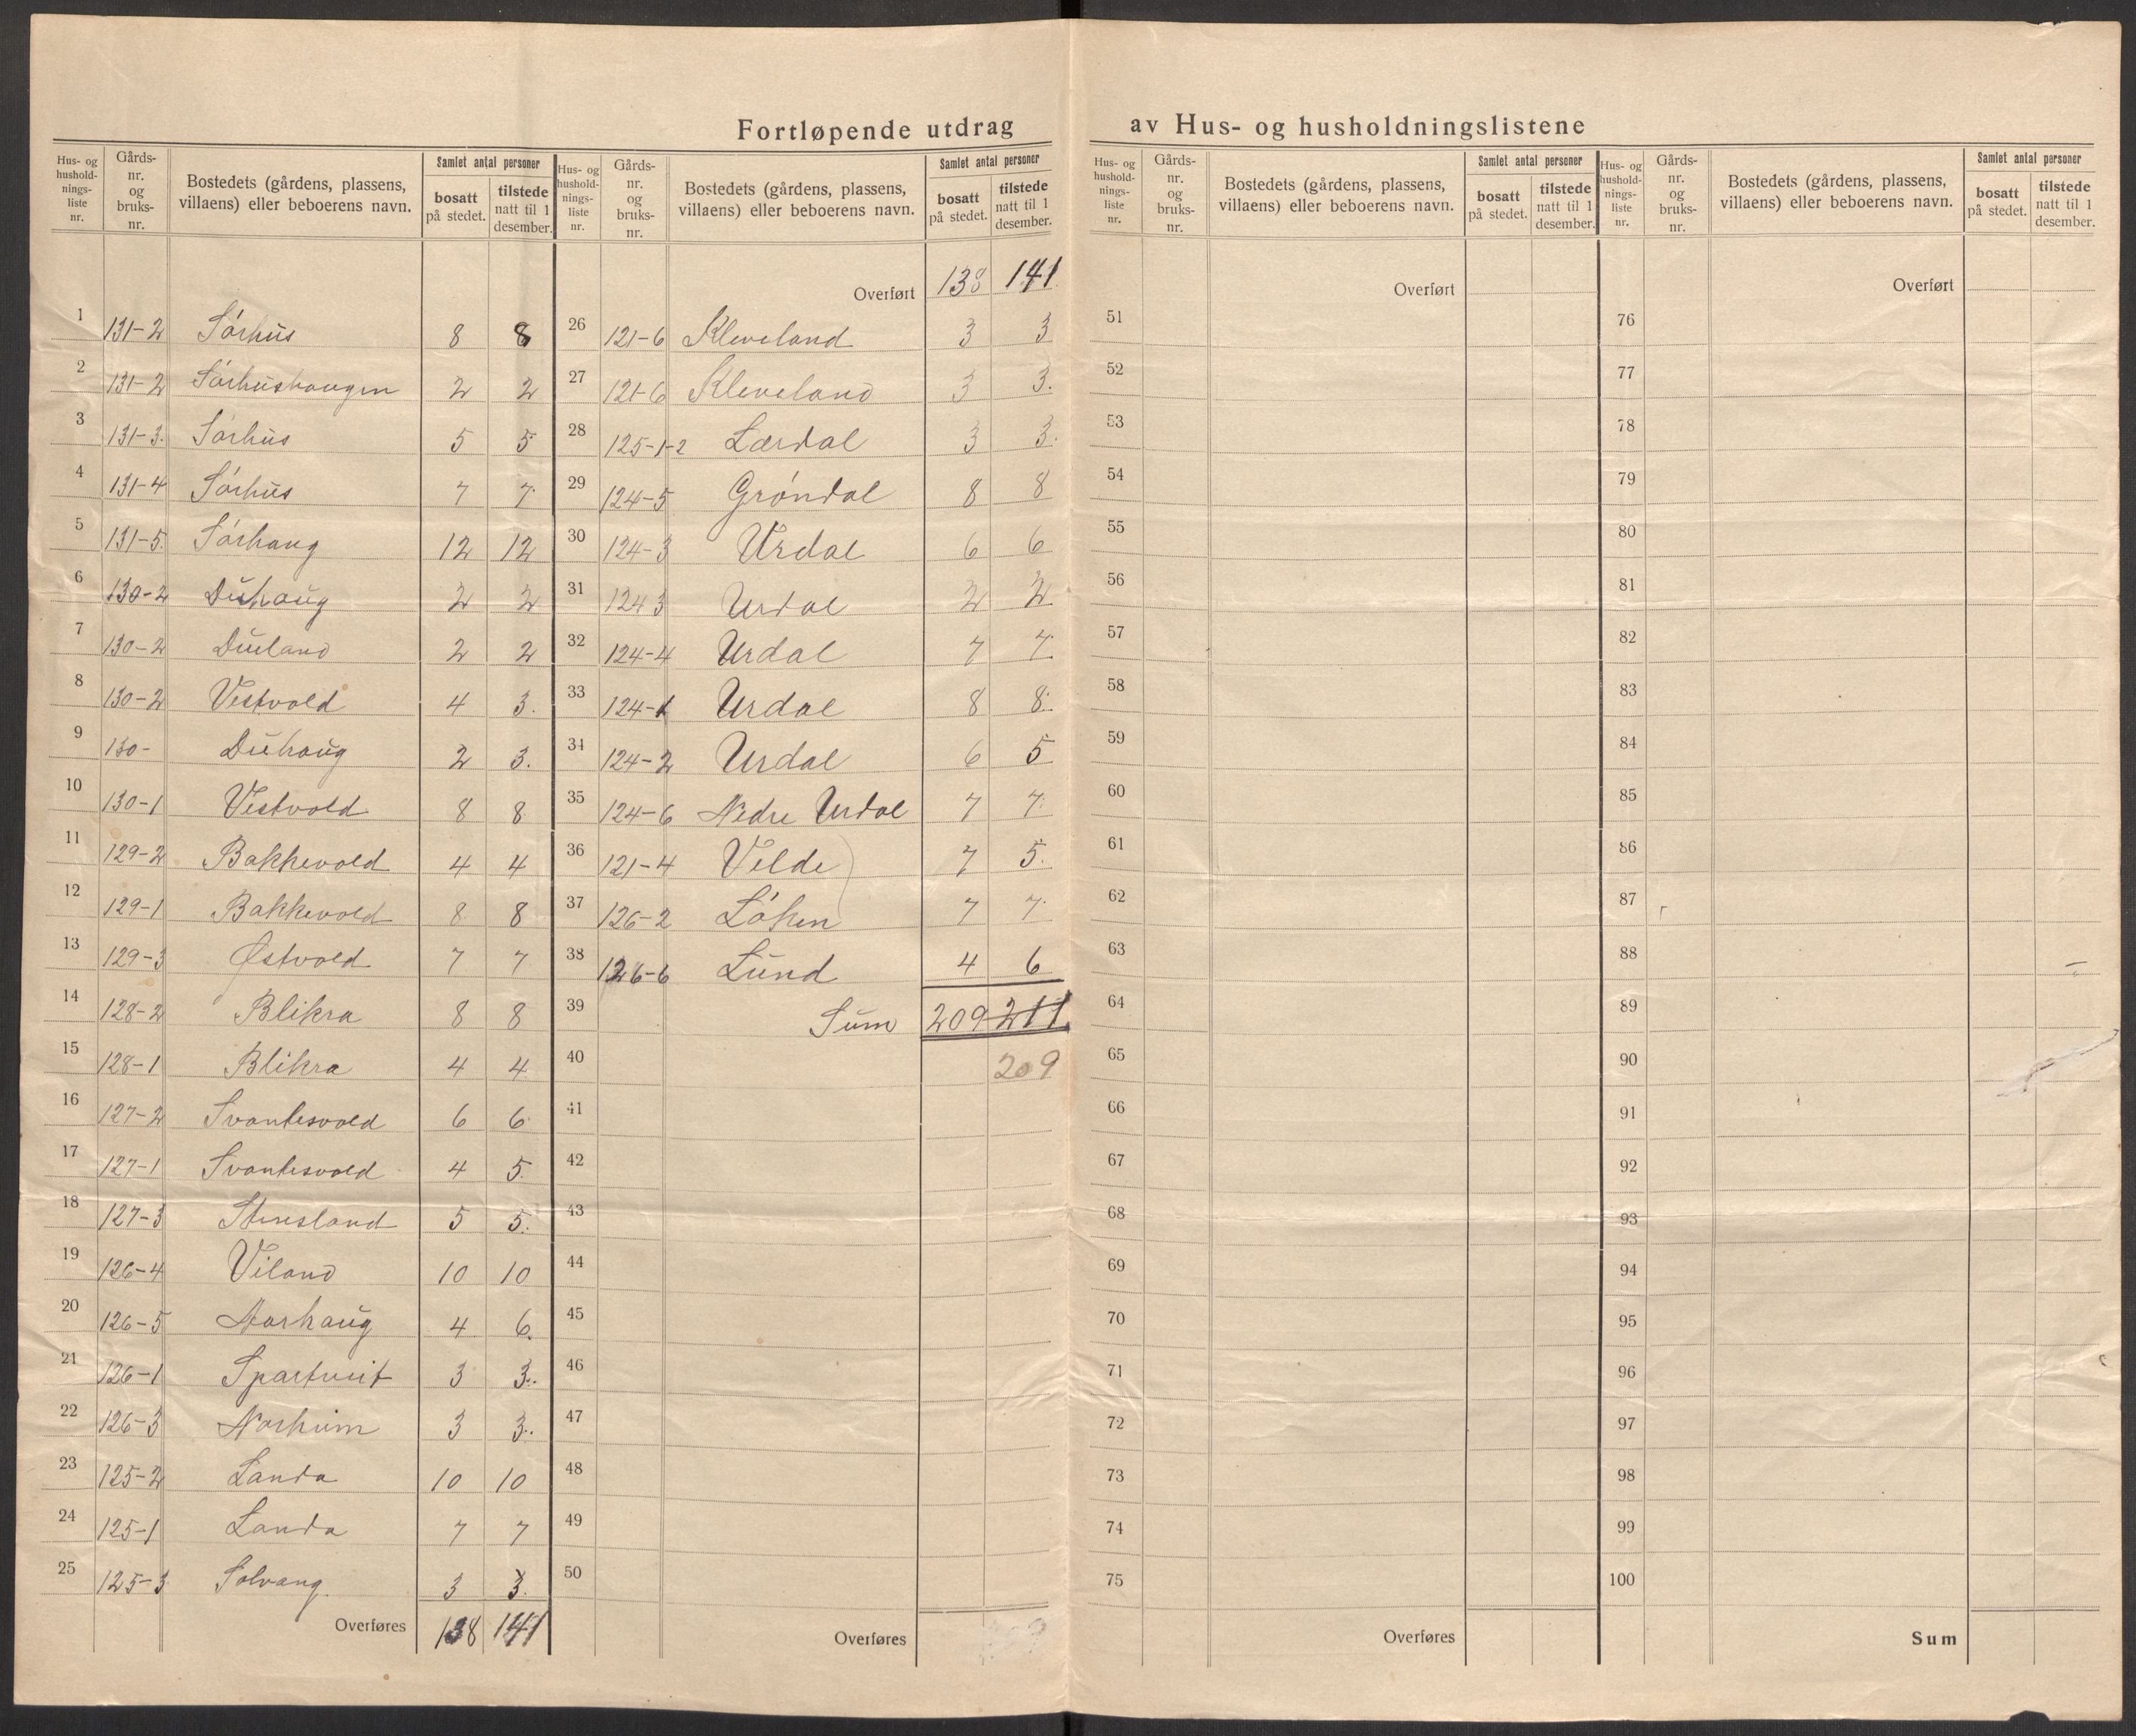 Fortløpende utdrag av Hus- og husholdningslistene
Hus- og hushold-nings-liste nr. | Gårds-nr. og bruks-nr. | Bostedets (gårdens, plassens, villaens) eller beboerens navn. | Samlet antal personer | bosatt på stedet. | tilstede natt til 1 desember.
1 131-2 Sórhus 8 8
2 131-2 Sórhushaugen 2 2
3 131-3. Sórhus 5 5
4 131-4 Sórhus 7 7
5 131-5. Sórhaug 12 12
6 130-2 Duhaug 2 2
7 130-2 Dueland 2 2
8 130-2 Vestvold 4 3.
9 130- Duhaug 2 3.
10 130-1 Vestvold 8 8
11 129-2 Bakkevold 4 4
12 129-1 Bakkevold 8 8
13 129-3 Østvold 7 7
14 128-2 Blikra 8 8
15 128-1 Blikra 4 4
16 127-2 Svantesvold 6 6
17 127-1 Svantesvold 4 5.
18 127-3 Stensland 5 5.
19 126-4 Viland 10 10
20 126-5 Aarhaug 4 6.
21 126-1 Spartveit 3 3.
22 126-3 Norheim 3 3.
23 125-2 Landa 10 10
24 125-1 Landa 7 7
25 125-3 Solvang. 3 3.
Overføres 138 141
Hus- og hushold-nings-liste nr. | Gårds-nr. og bruks-nr. | Bostedets (gårdens, plassens, villaens) eller beboerens navn. | Samlet antal personer | bosatt på stedet. | tilstede natt til 1 desember.
Overført 138 141
26 121-6 Kleveland 3 3
27 121-6 Kleveland 3 3.
28 125-1-2 Lærdal 3 3.
29 124-5 Gróndal 8 8
30 124-3 Urdal 6 6
31 124 3 Urdal 2 2
32 124-4 Urdal 7 7.
33 124-1 Urdal 8 8.
34 124-2 Urdal 6 5
35 124-6 Nedre Urdal 7 7.
36 121-4 Velde 7 5.
37 126-2 Lóken 7 7.
38 126-6 Lund 4 6
39 Sum 209 211
40 209
41
42
43
44
45
46
47
48
49
50
Overføres
Hus- og hushold-nings-liste nr. | Gårds-nr. og bruks-nr. | Bostedets (gårdens, plassens, villaens) eller beboerens navn. | Samlet antal personer | bosatt på stedet. | tilstede natt til 1 desember.
Overført
51
52
53
54
55
56
57
58
59
60
61
62
63
64
65
66
67
68
69
70
71
72
73
74
75
Overføres
Hus- og hushold-nings-liste nr. | Gårds-nr. og bruks-nr. | Bostedets (gårdens, plassens, villaens) eller beboerens navn. | Samlet antal personer | bosatt på stedet. | tilstede natt til 1 desember.
Overført
76
77
78
79
80
81
82
83
84
85
86
87
88
89
90
91
92
93
94
95
96
97
98
99
100
Sum